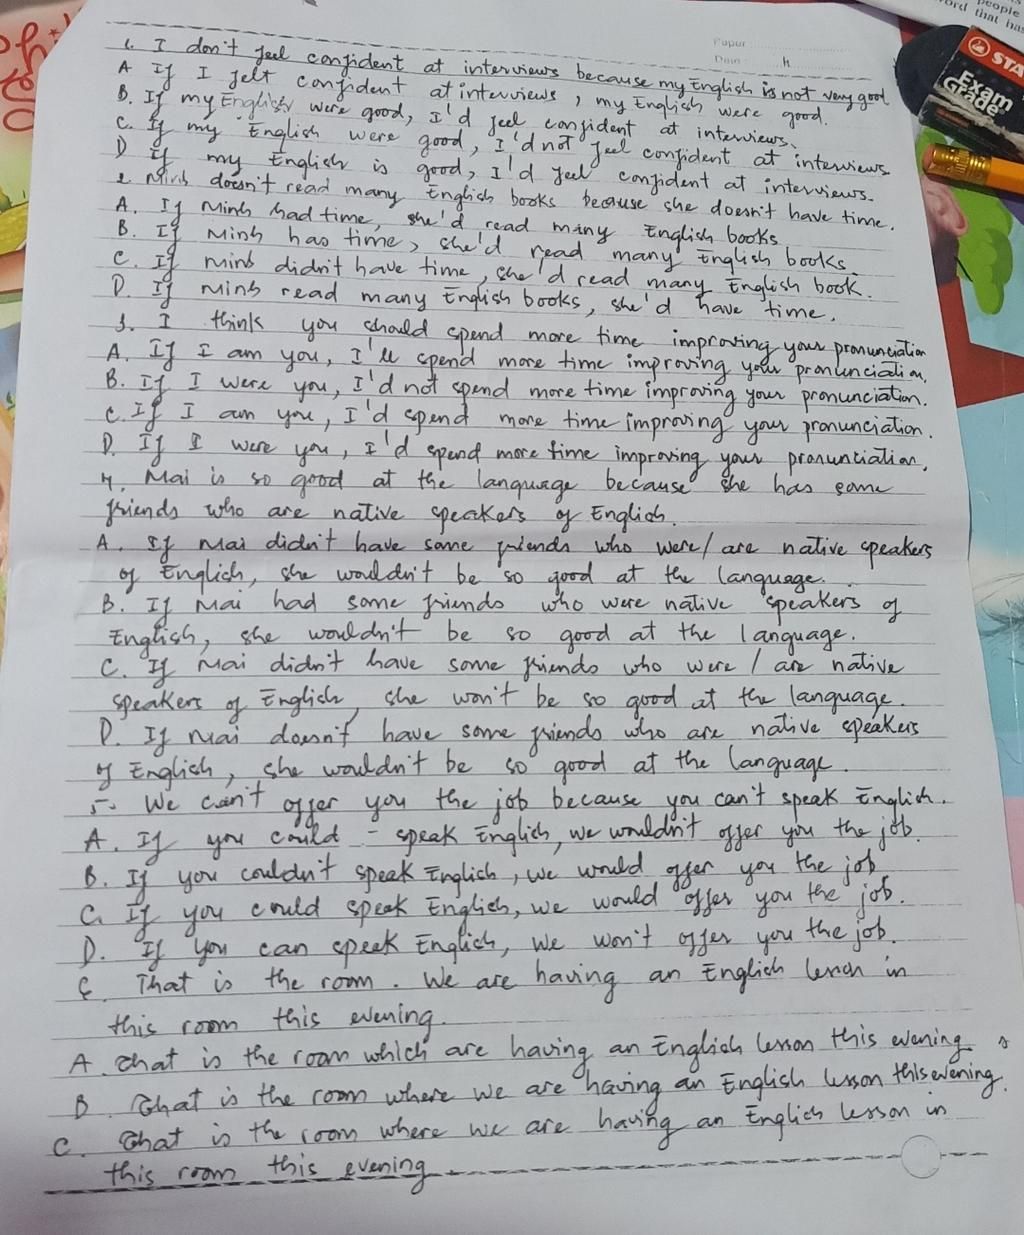 people
ord that has
Paper
Date h
STA
Exam
Grade
1. I don't feel confident at interviews because my English is not very good
A If I felt confident at interviews, my English were good.
B. If my English were good, I'd feel confident at interviews.
C. If my English were good, I'd not feel confident at interviews
D If my English is good, I'd feel confident at interviews.
2 Minh doesn't read many English books because she doesn't have time.
A. If Minh had time, she'd read many English books
B. If Minh has time, she'd read many English books.
C. If Minh didn't have time, she'd read many English book.
D. If Minh read many English books, she'd have time.
3. I think you should spend more time improving your pronunciation
A. If I am you, I'll spend more time improving your pronunciation.
B. If I were you, I'd not spend more time improving your pronunciation.
C. If I am you, I'd spend more time improving your pronunciation.
D. If I were you, I'd spend more time improving your pronunciation.
4. Mai is so good at the language because she has some
friends who are native speakers of English.
A. If Mai didn't have some friends who were/are native speakers
of English, she wouldn't be so good at the language.
B. If Mai had some friends who were native speakers of
English, she wouldn't be so good at the language.
C. If Mai didn't have some friends who were / are native
speakers of English, she won't be so good at the language.
D. If Mai doesn't have some friends who are native speakers
of English, she wouldn't be so good at the language.
5. We can't offer you the job because you can't speak English.
A. If you could - speak English, we wouldn't offer you the job.
B. If you couldn't speak English, we would offer you the job
C. If you could speak English, we would offer you the job.
D. If you can speak English, we won't offer you the job.
6. That is the room. We are having an English lesson in
this room this evening.
A. That is the room which are having an English lesson this evening
B. That is the room where we are having an English lesson this evening.
C. That is the room where we are having an English lesson in
this room this evening.